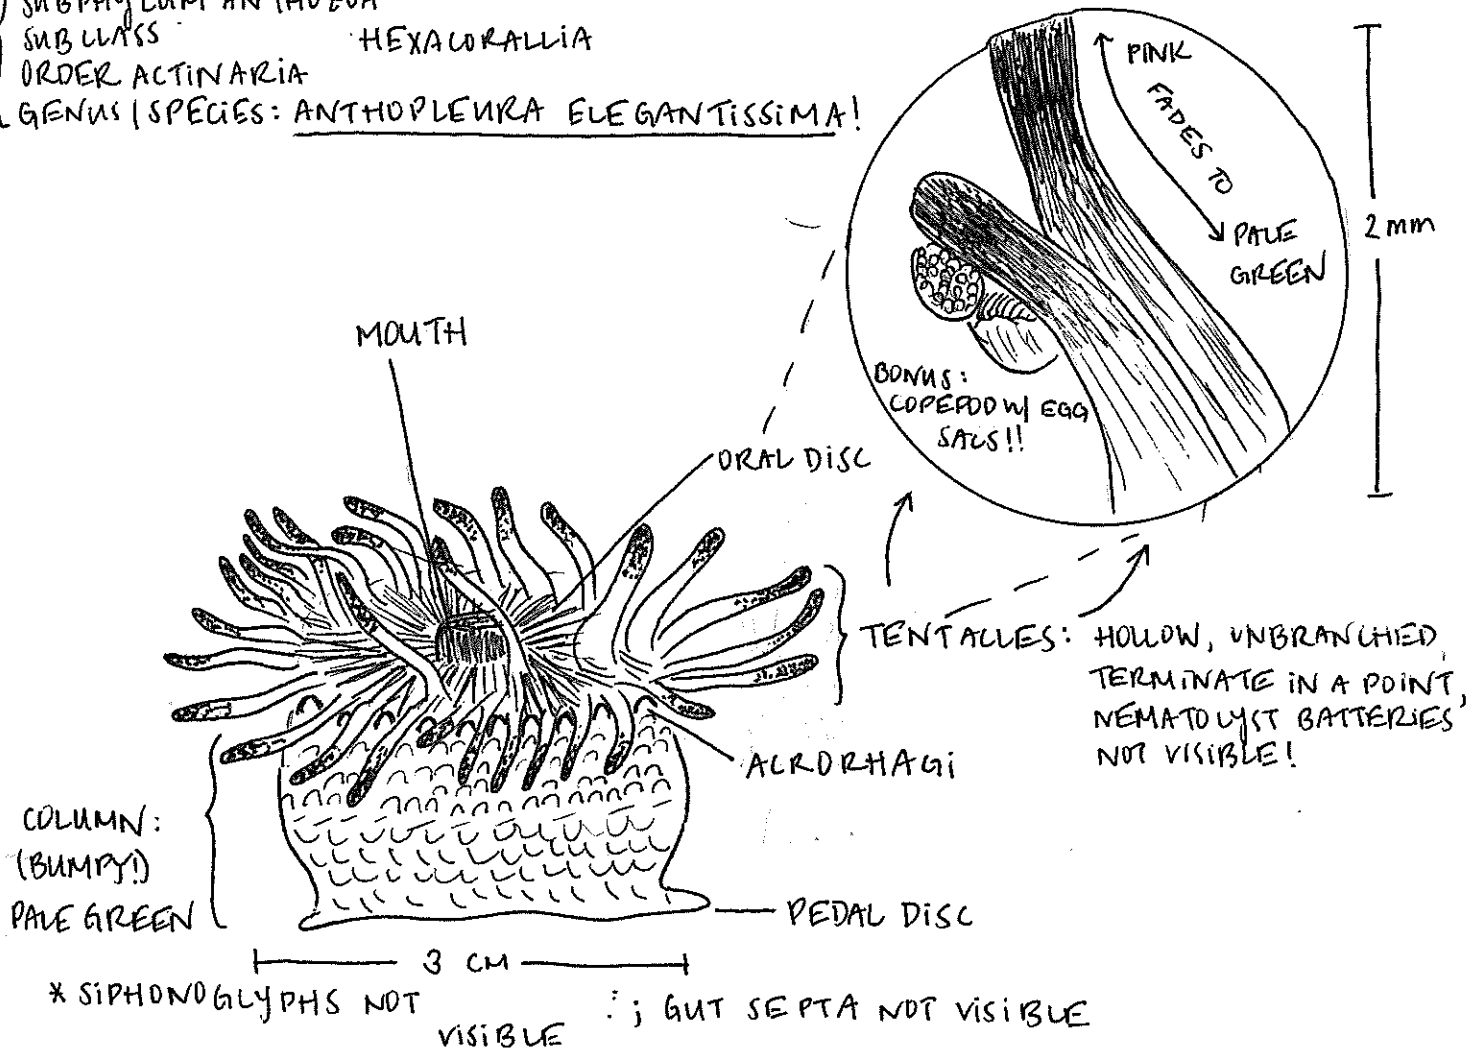 SUBPHYLUM ANTHOZOA
SUBCLASS HEXACORALLIA
ORDER ACTINARIA
GENUS/SPECIES: ANTHOPLEURA ELEGANTISSIMA!
PINK
FADES TO
PALE
GREEN
2 mm
BONUS:
COPEPOD W/ EGG
SACS!!
MOUTH
ORAL DISC
TENTACLES: HOLLOW, UNBRANCHED,
TERMINATE IN A POINT,
NEMATOCYST BATTERIES
NOT VISIBLE!
ACRORHAGI
COLUMN:
(BUMPY!)
PALE GREEN
PEDAL DISC
3 CM
* SIPHONOGLYPHS NOT
VISIBLE
; GUT SEPTA NOT VISIBLE